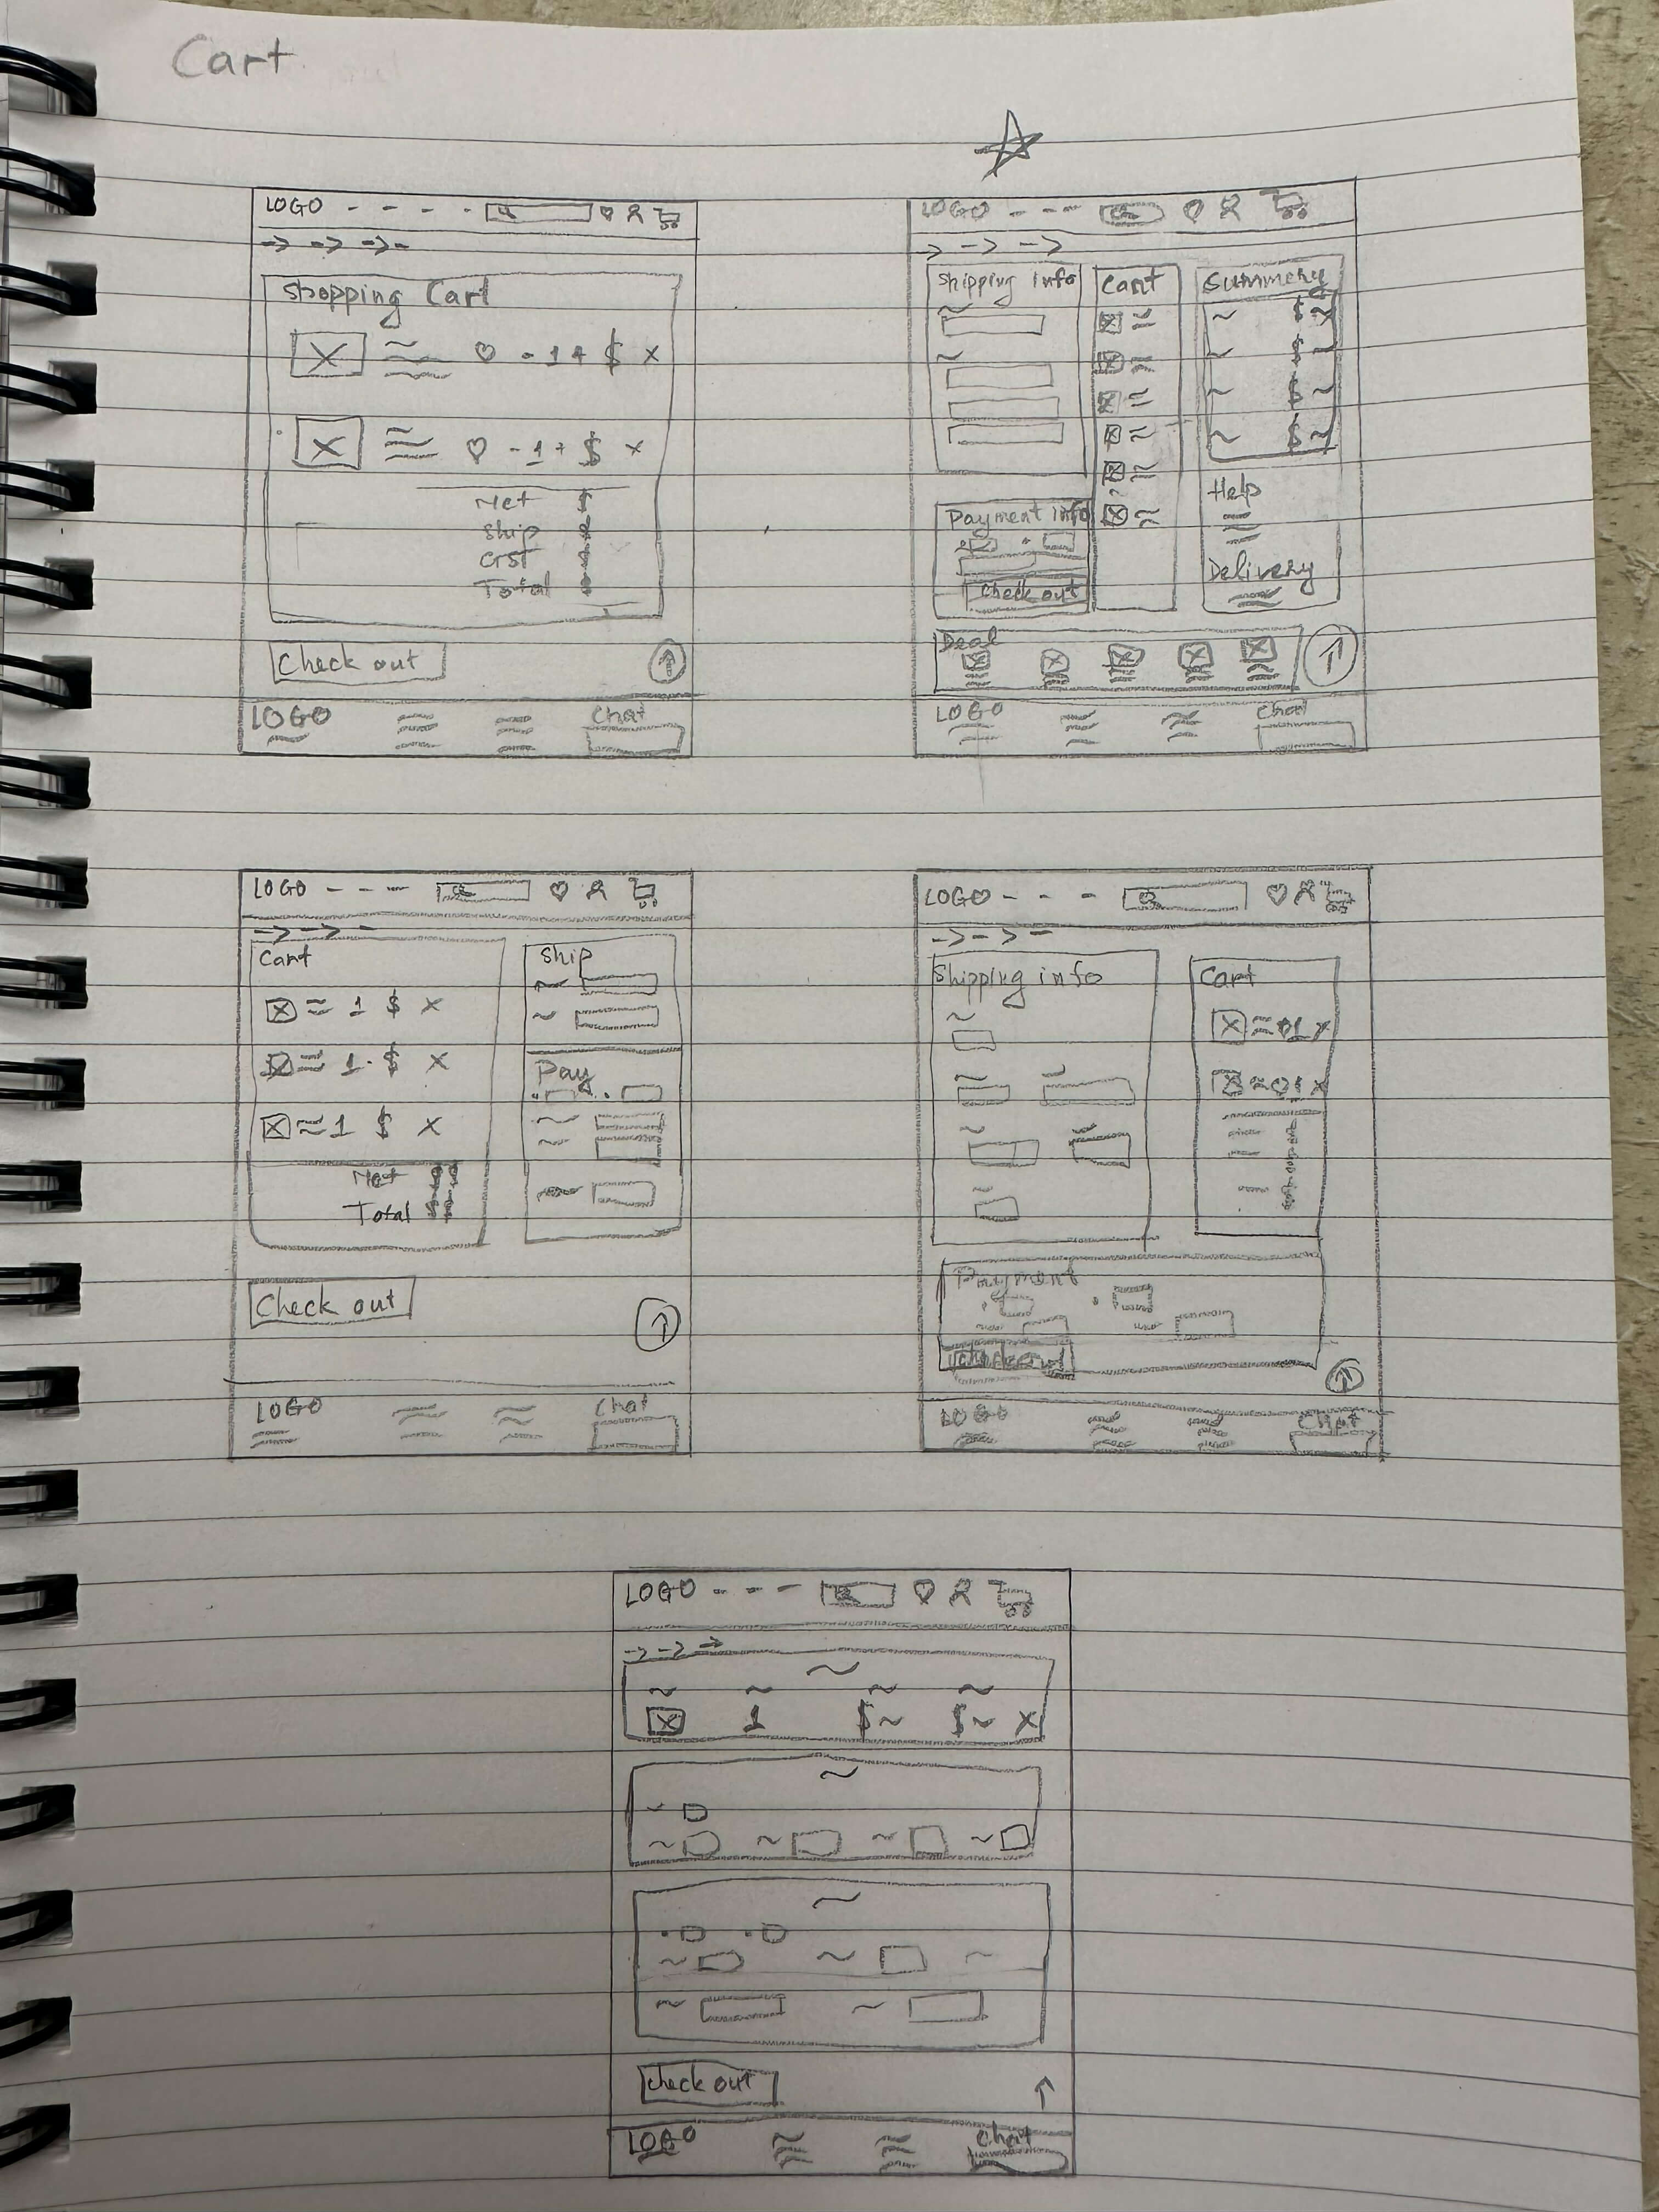 Cart
LOGO
Shopping Cart
- 1 + $ x
- 1 + $ x
Net $
Ship $
GST $
Total $
Check out
LOGO Chat
LOGO
Shipping info
Cart
Summery
$
$
$
$
Help
Delivery
Payment info
Check out
Deal
LOGO Chat
LOGO
Cart
1 $ x
1 $ x
1 $ x
Net $$
Total $$
Ship
Pay
Check out
LOGO Chat
LOGO
Shipping info
Cart
1 x
1 x
Payment
LOGO Chat
LOGO
1 $ $ X
Check out
LOGO Chat